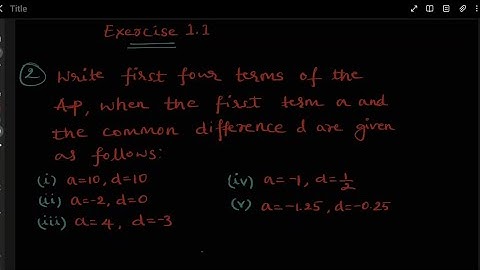 Title
Exercise 1.1
② Write first four terms of the
A.P, when the first term a and
the common difference d are given
as follows:
(i) a=10, d=10
(ii) a=-2, d=0
(iii) a=4, d=-3
(iv) a=-1, d=1/2
(v) a=-1.25, d=-0.25